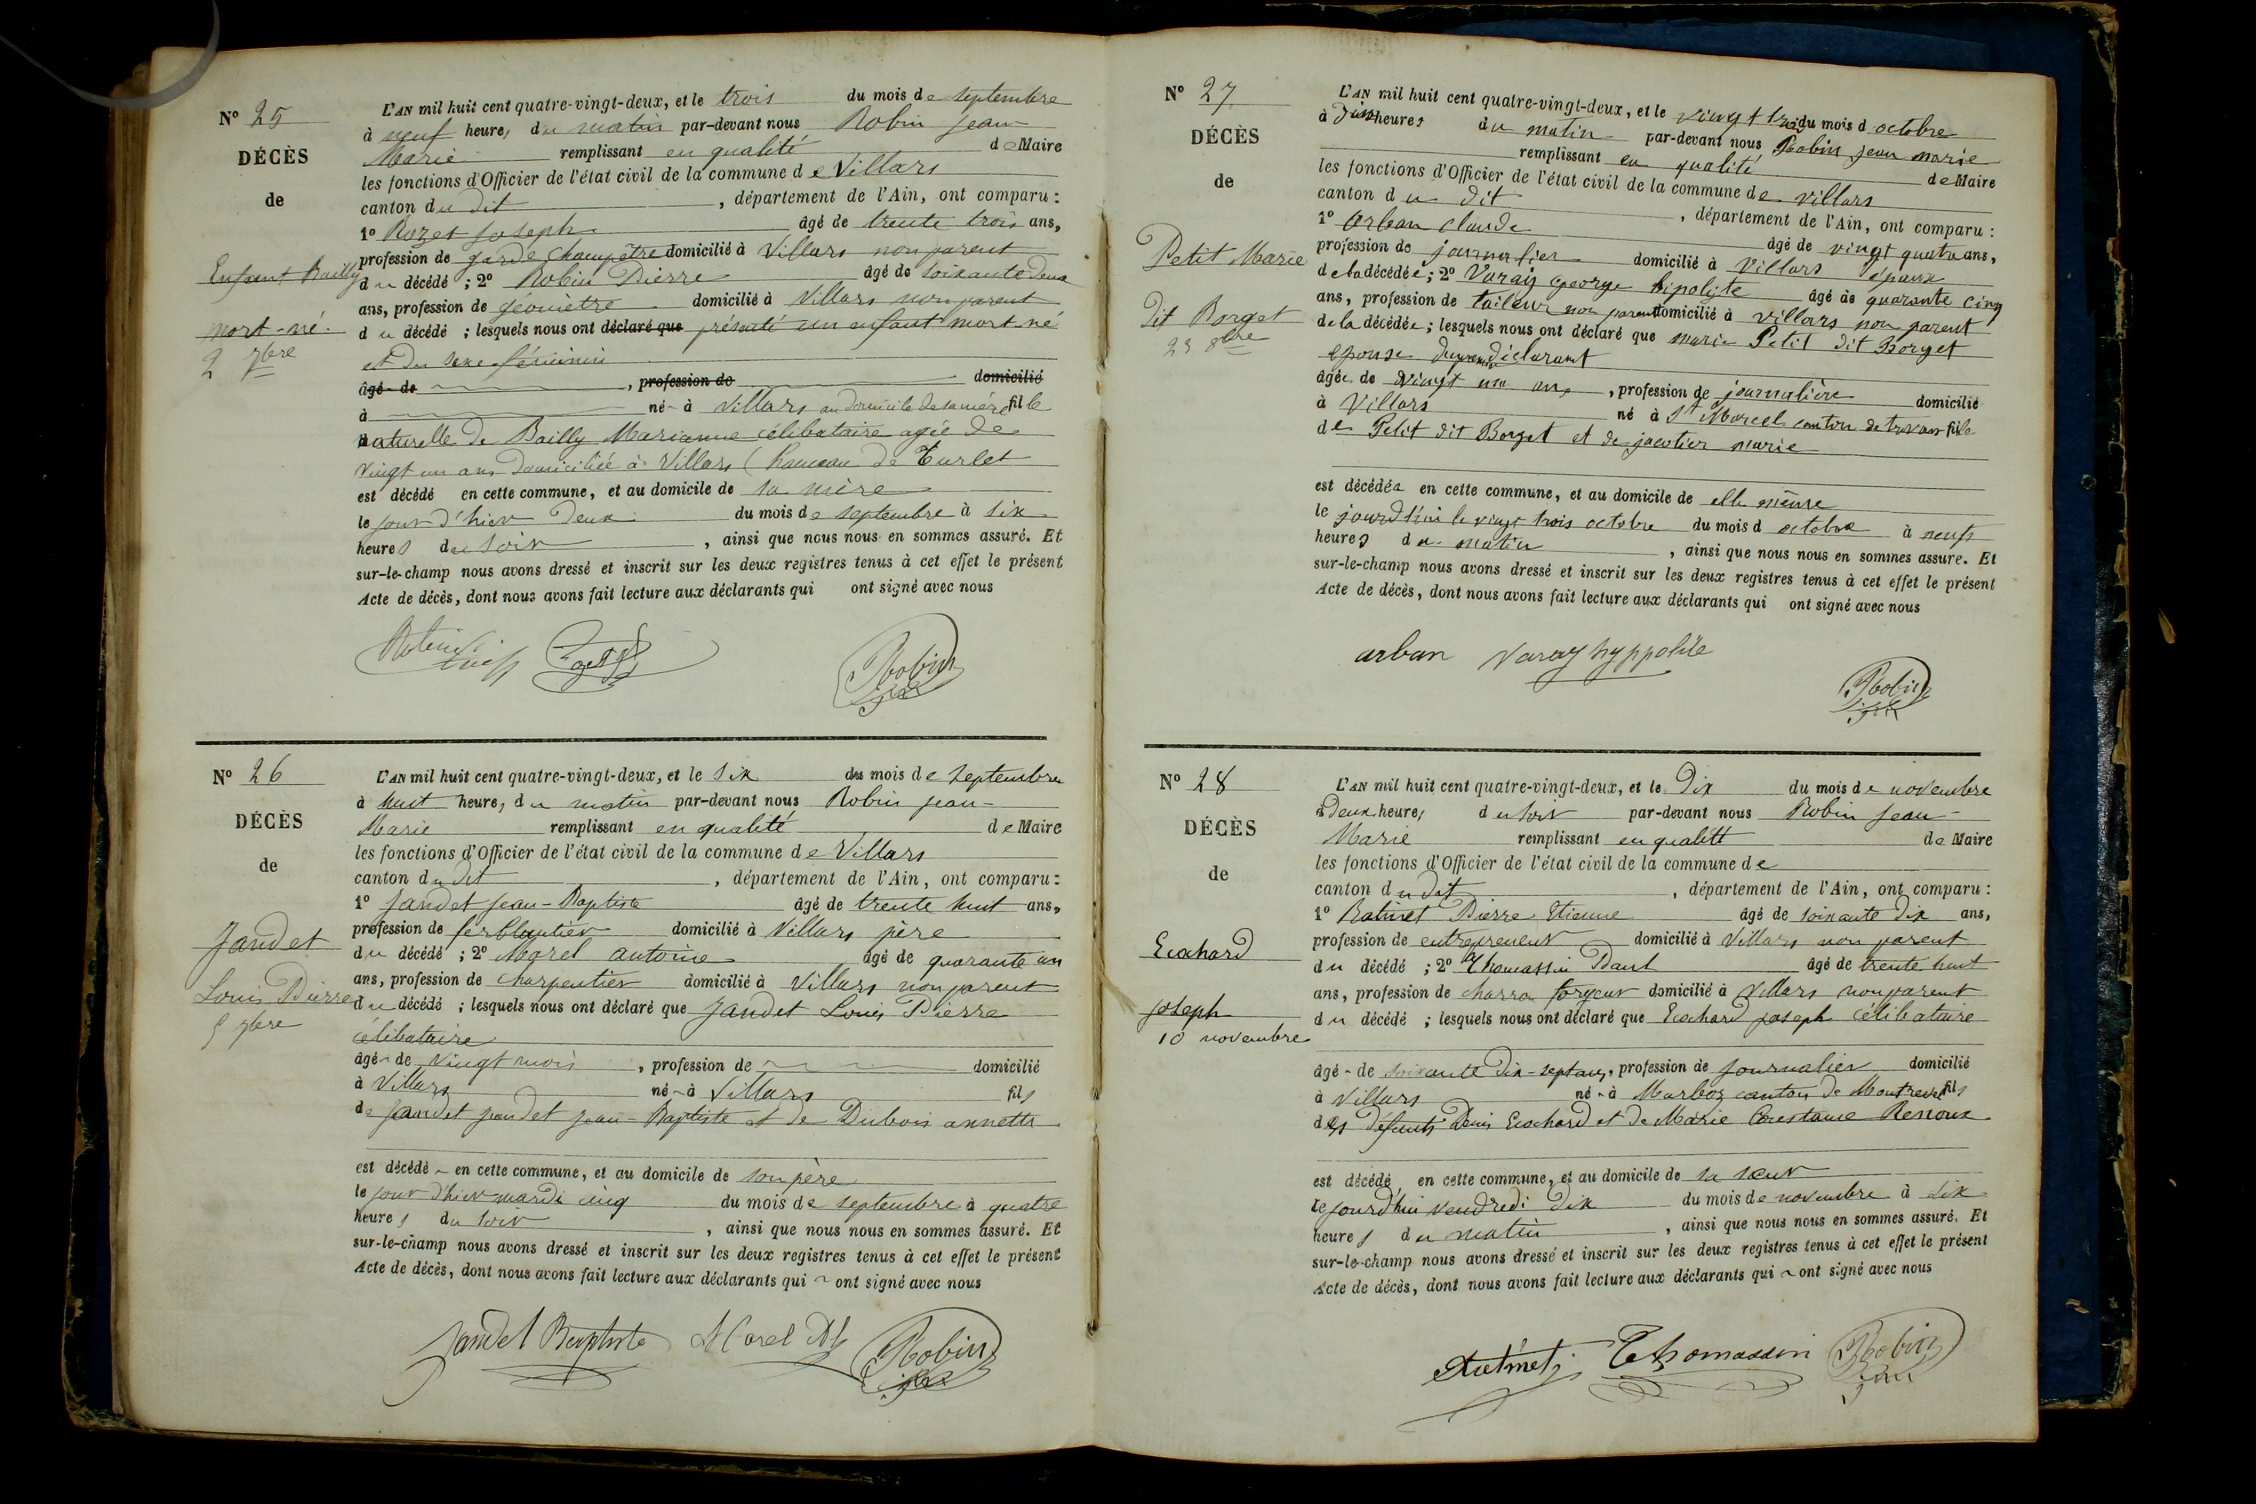 N° 25
DÉCÈS
de
Enfant Bailly
mort-né
2 7bre
L'AN mil huit cent quatre-vingt-deux, et le trois du mois de septembre
à neuf heures du matin par-devant nous Robin Jean
Marie remplissant en qualité de Maire
les fonctions d'Officier de l'état civil de la commune de Villars
canton du dit, département de l'Ain, ont comparu :
1° Rozet Joseph âgé de trente trois ans,
profession de garde champêtre domicilié à Villars non parent
du décédé ; 2° Robin Pierre âgé de soixante deux
ans, profession de géomètre domicilié à Villars non parent
du décédé ; lesquels nous ont déclaré que présenté un enfant mort-né
et du sexe féminin
âgé de , profession de domicilié
à né à Villars au domicile de sa mère fille
naturelle de Bailly Marianne célibataire agée de
vingt un ans domiciliée à Villars (hameau de Turlet
est décédé en cette commune, et au domicile de sa mère
le jour d'hier deux du mois de septembre à six
heures du soir , ainsi que nous nous en sommes assuré. Et
sur-le-champ nous avons dressé et inscrit sur les deux registres tenus à cet effet le présent
Acte de décès, dont nous avons fait lecture aux déclarants qui ont signé avec nous
Robin
Robin
N° 26
DÉCÈS
de
Jandet
Louis Pierre
5 7bre
L'AN mil huit cent quatre-vingt-deux, et le six du mois de septembre
à huit heures du matin par-devant nous Robin Jean-
Marie remplissant en qualité de Maire
les fonctions d'Officier de l'état civil de la commune de Villars
canton du dit , département de l'Ain, ont comparu :
1° Jandet Jean-Baptiste âgé de trente huit ans,
profession de ferblantier domicilié à Villars père
du décédé ; 2° Morel antoine âgé de quarante un
ans, profession de charpentier domicilié à Villars non parent
du décédé ; lesquels nous ont déclaré que Jandet Louis Pierre
célibataire
âgé de vingt mois , profession de domicilié
à Villars né à Villars fils
de Jandet jandet Jean-Baptiste et de Dubois annette
est décédé en cette commune, et au domicile de son père
le jour d'hier mardi cinq du mois de septembre à quatre
heures du soir , ainsi que nous nous en sommes assuré. Et
sur-le-champ nous avons dressé et inscrit sur les deux registres tenus à cet effet le présent
Acte de décès, dont nous avons fait lecture aux déclarants qui ont signé avec nous
Jandet Baptiste Morel Robin
N° 27
DÉCÈS
de
Petit Marie
dit Borget
23 8bre
L'AN mil huit cent quatre-vingt-deux, et le vingt trois du mois d octobre
à dix heures du matin par-devant nous Robin jean marie
remplissant en qualité de Maire
les fonctions d'Officier de l'état civil de la commune de villars
canton du dit , département de l'Ain, ont comparu :
1° Arban claude âgé de vingt quatre ans,
profession de journalier domicilié à Villars épaux
de la décédée ; 2° Varay george hipolyte âgé de quarante cinq
ans, profession de tailleur non parent domicilié à villars non parent
de la décédée ; lesquels nous ont déclaré que marie Petit dit Borget
epouse du premier déclarant
âgée de vingt un ans , profession de journalière domicilié
à Villars né à St Marcel canton de trevoux fille
de Petit dit Borget et de jacotier marie
est décédée en cette commune, et au domicile de elle même
le jourd'hui le vingt trois octobre du mois d octobre à neuf
heures du matin , ainsi que nous nous en sommes assuré. Et
sur-le-champ nous avons dressé et inscrit sur les deux registres tenus à cet effet le présent
Acte de décès, dont nous avons fait lecture aux déclarants qui ont signé avec nous
arban Varay hyppolite
Robin
N° 28
DÉCÈS
de
Ecochard
joseph
10 novembre
L'AN mil huit cent quatre-vingt-deux, et le Dix du mois de novembre
à Deux heures du soir par-devant nous Robin Jean-
Marie remplissant en qualité de Maire
les fonctions d'Officier de l'état civil de la commune de
canton du dit , département de l'Ain, ont comparu :
1° Pierre Etienne âgé de soixante dix ans,
profession de entrepreneur domicilié à Villars non parent
du décédé ; 2° Thomassin Paul âgé de trente huit
ans, profession de charron forgeur domicilié à Villars non parent
du décédé ; lesquels nous ont déclaré que Ecochard joseph célibataire
âgé de soixante dix-sept ans, profession de journalier domicilié
à Villars né à Marboz canton de Montrevel fils
des défunts Denis Ecochard et de Marie Constance Renoux
est décédé en cette commune, et au domicile de sa sœur
le jourd'hui vendredi dix du mois de novembre à six
heures du matin , ainsi que nous nous en sommes assuré. Et
sur-le-champ nous avons dressé et inscrit sur les deux registres tenus à cet effet le présent
Acte de décès, dont nous avons fait lecture aux déclarants qui ont signé avec nous
Thomassin Robin